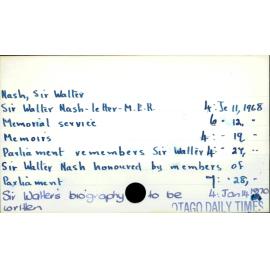 Nash, Sir Walter
Sir Walter Nash-letter-M.E.R. 4: Je 11, 1968
Memorial service 6 " 12, "
Memoirs 4: " 19, "
Parliament remembers Sir Walter 4: " 27, "
Sir Walter Nash honoured by members of
Parliament 7: " 28, "
Sir Walter's biography to be 4: Jan 14 1970
written
OTAGO DAILY TIMES